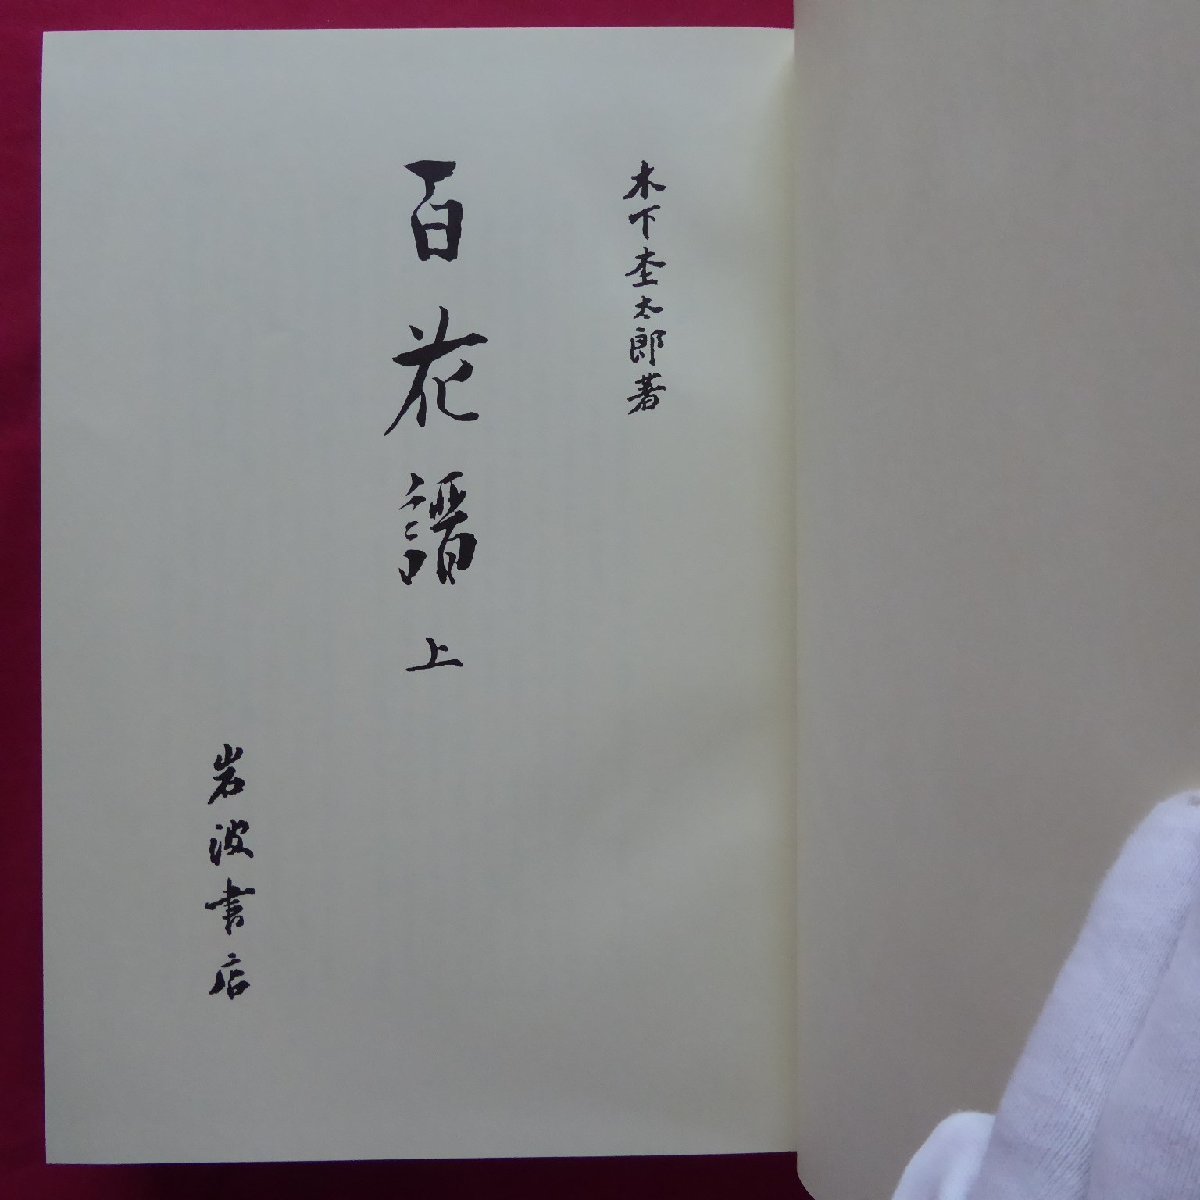 木下杢太郎著
百花譜 上
岩波書店